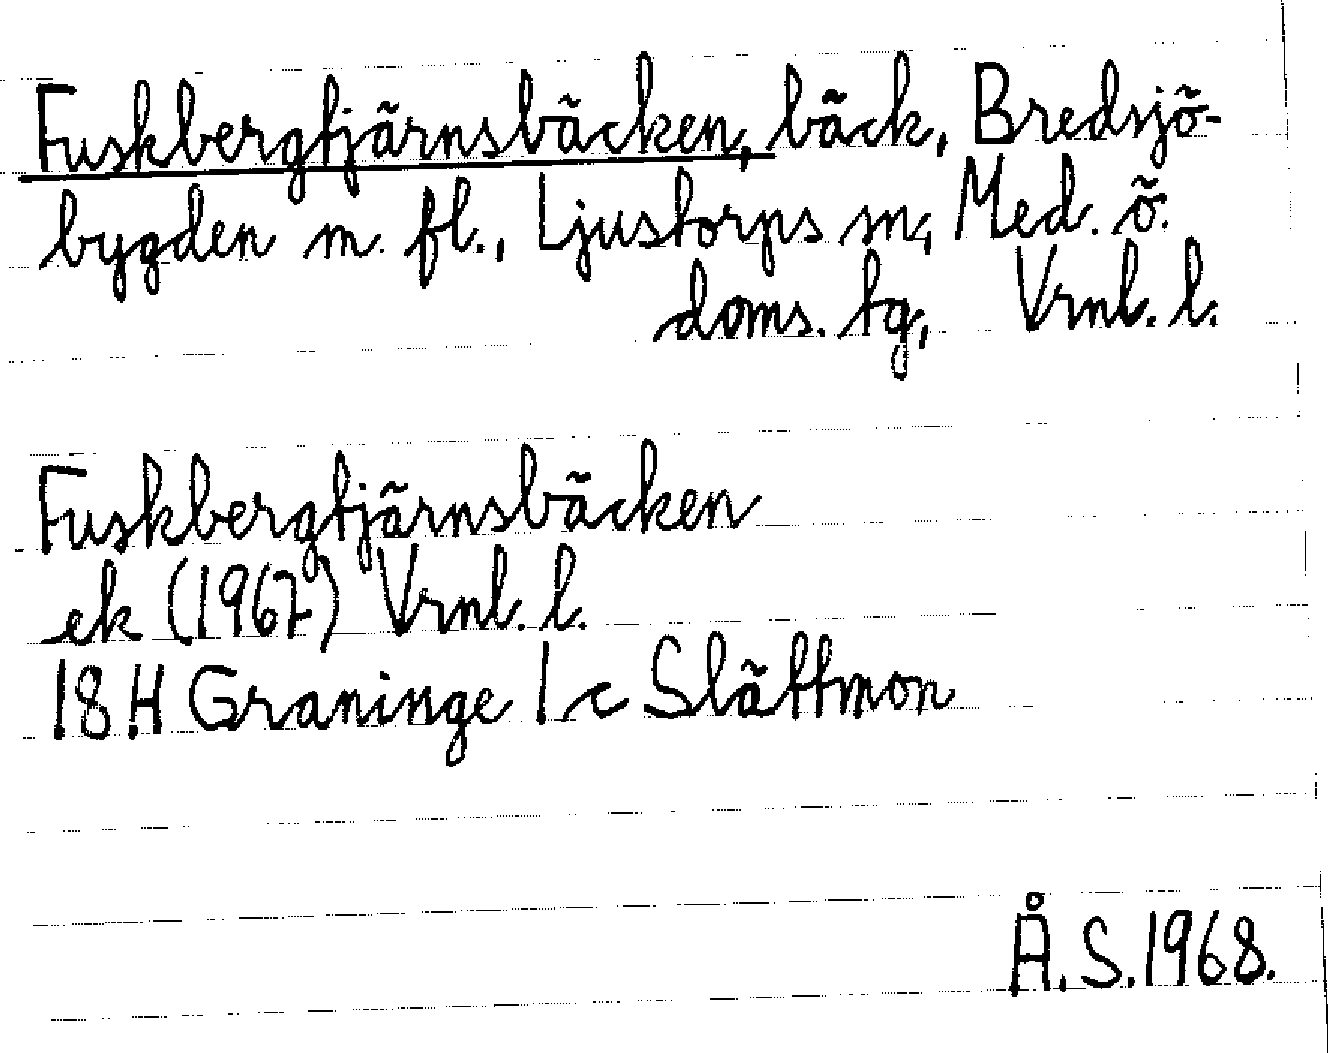 Fuskbergtjärnsbäcken, bäck, Bredsjö-
bygden m. fl., Ljustorps sn, Med. ö.
doms. tg, Vrnl. l.
Fuskbergtjärnsbäcken
ek (1967) Vrnl. l.
18 H Graninge 1 c Slättmon
Å. S. 1968.